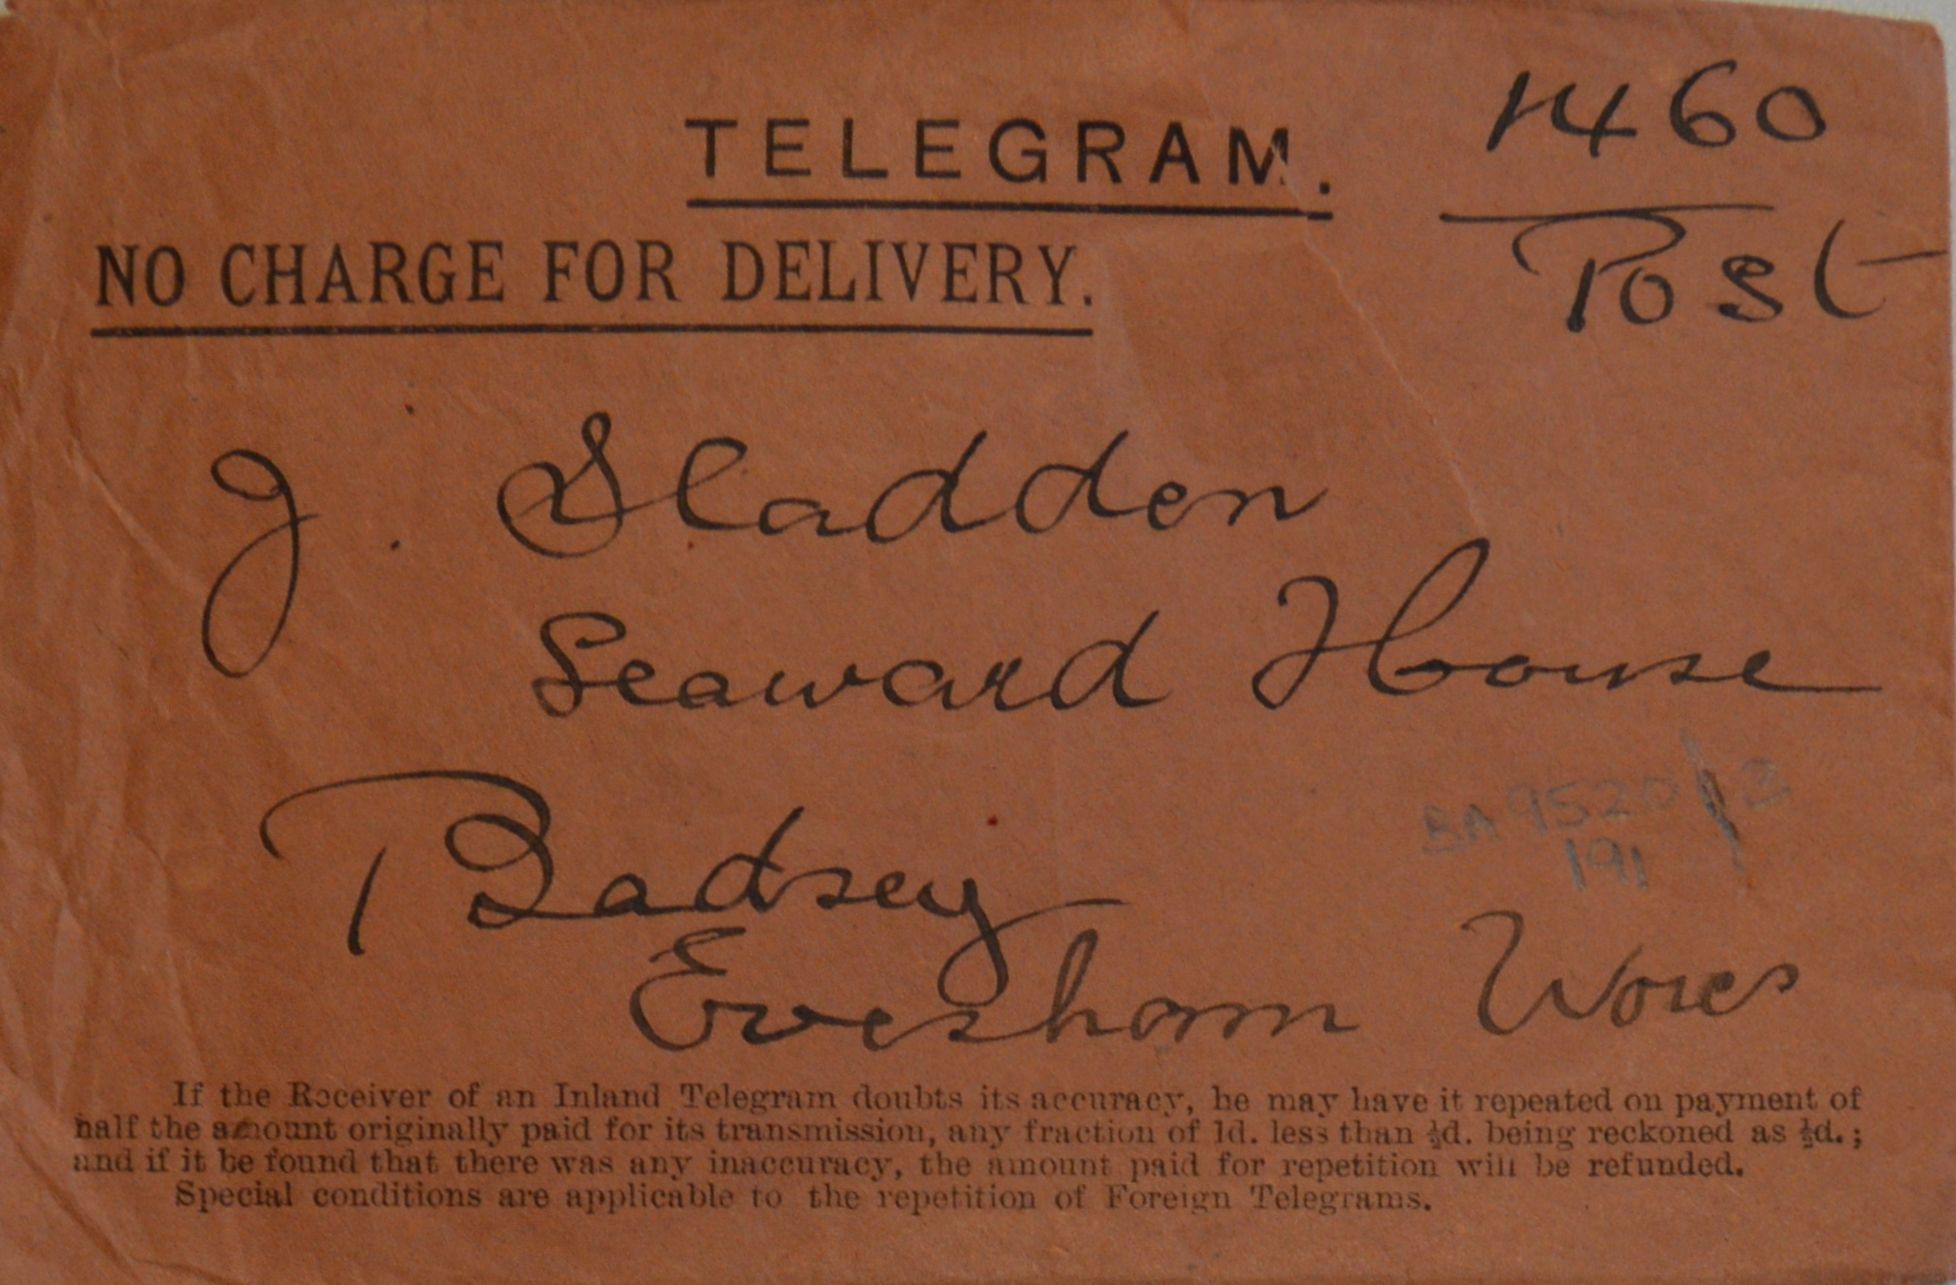 TELEGRAM.
1460
Post
NO CHARGE FOR DELIVERY.
J. Sladden
Seaward House
Badsey
BA 9520/2
191
Evesham Worcs
If the Receiver of an Inland Telegram doubts its accuracy, he may have it repeated on payment of
half the amount originally paid for its transmission, any fraction of 1d. less than ½d. being reckoned as ½d.;
and if it be found that there was any inaccuracy, the amount paid for repetition will be refunded.
Special conditions are applicable to the repetition of Foreign Telegrams.